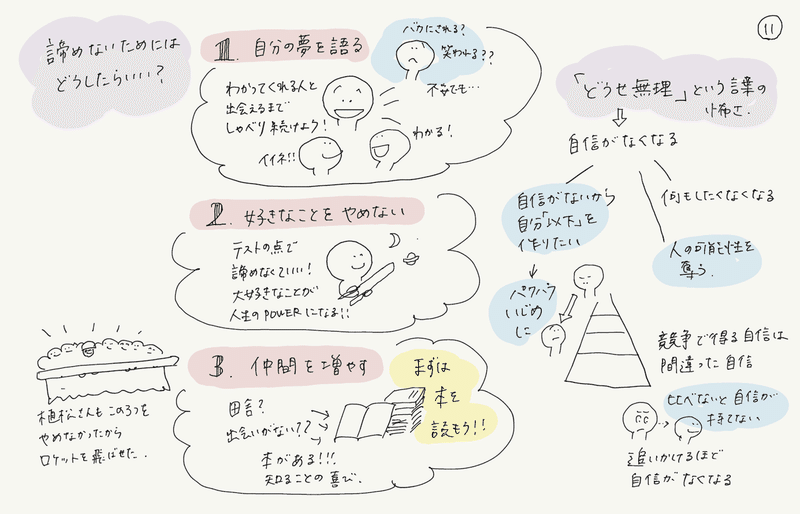 11
諦めないためには
どうしたらいい?
1. 自分の夢を語る
わかってくれる人と
出会えるまで
しゃべり続けよう!
バカにされる?
笑われる??
不安でも…
イイネ!!
わかる!
2. 好きなことをやめない
テストの点で
諦めなくていい!
大好きなことが
人生のPOWERになる!!
3. 仲間を増やす
田舎?
出会いがない??
本がある!!!
知ることの喜び.
まずは
本を
読もう!!
植松さんもこの3つを
やめなかったから
ロケットを飛ばせた.
「どうせ無理」という言葉の
怖さ.
自信がなくなる
自信がないから
自分「以下」を
作りたい
パワハラ
いじめ
に
何もしたくなくなる
人の可能性を
奪う.
競争で得る自信は
間違った自信
比べないと自信が
持てない
追いかけるほど
自信がなくなる